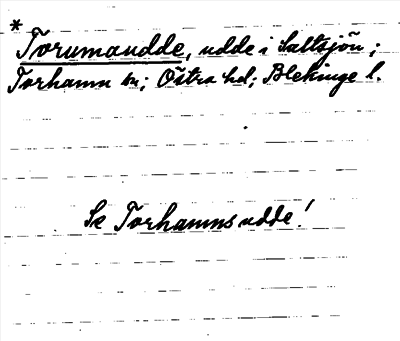 *
Torumaudde, udde i Saltsjön;
Torhamn sn; Östra hd; Blekinge l.
Se Torhamns udde!